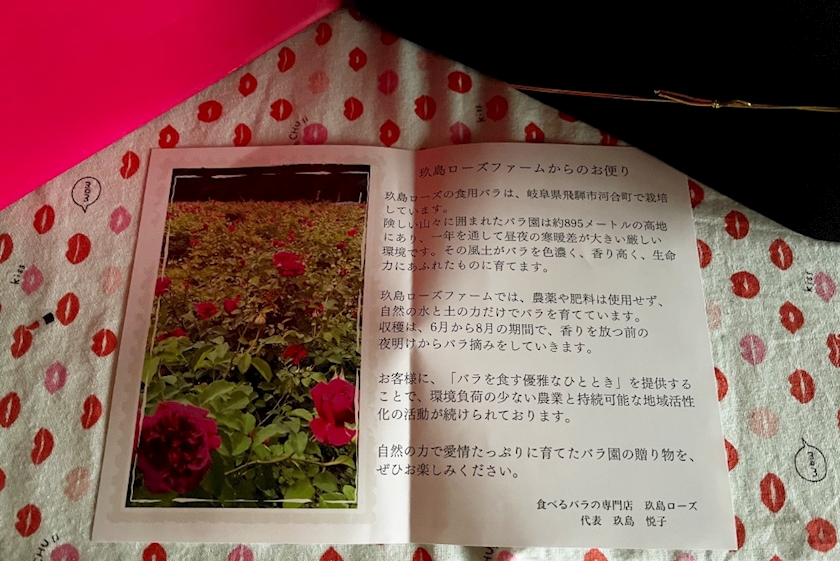 玖島ローズファームからのお便り
玖島ローズの食用バラは、岐阜県飛騨市河合町で栽培
しています。
険しい山々に囲まれたバラ園は約895メートルの高地
にあり、一年を通して昼夜の寒暖差が大きい厳しい
環境です。その風土がバラを色濃く、香り高く、生命
力にあふれたものに育てます。
玖島ローズファームでは、農薬や肥料は使用せず、
自然の水と土の力だけでバラを育てています。
収穫は、6月から8月の期間で、香りを放つ前の
夜明けからバラ摘みをしていきます。
お客様に、「バラを食す優雅なひととき」を提供する
ことで、環境負荷の少ない農業と持続可能な地域活性
化の活動が続けられております。
自然の力で愛情たっぷりに育てたバラ園の贈り物を、
ぜひお楽しみください。
食べるバラの専門店 玖島ローズ
代表 玖島 悦子
CHU!!
kiss
kiss
kiss
CHU!!